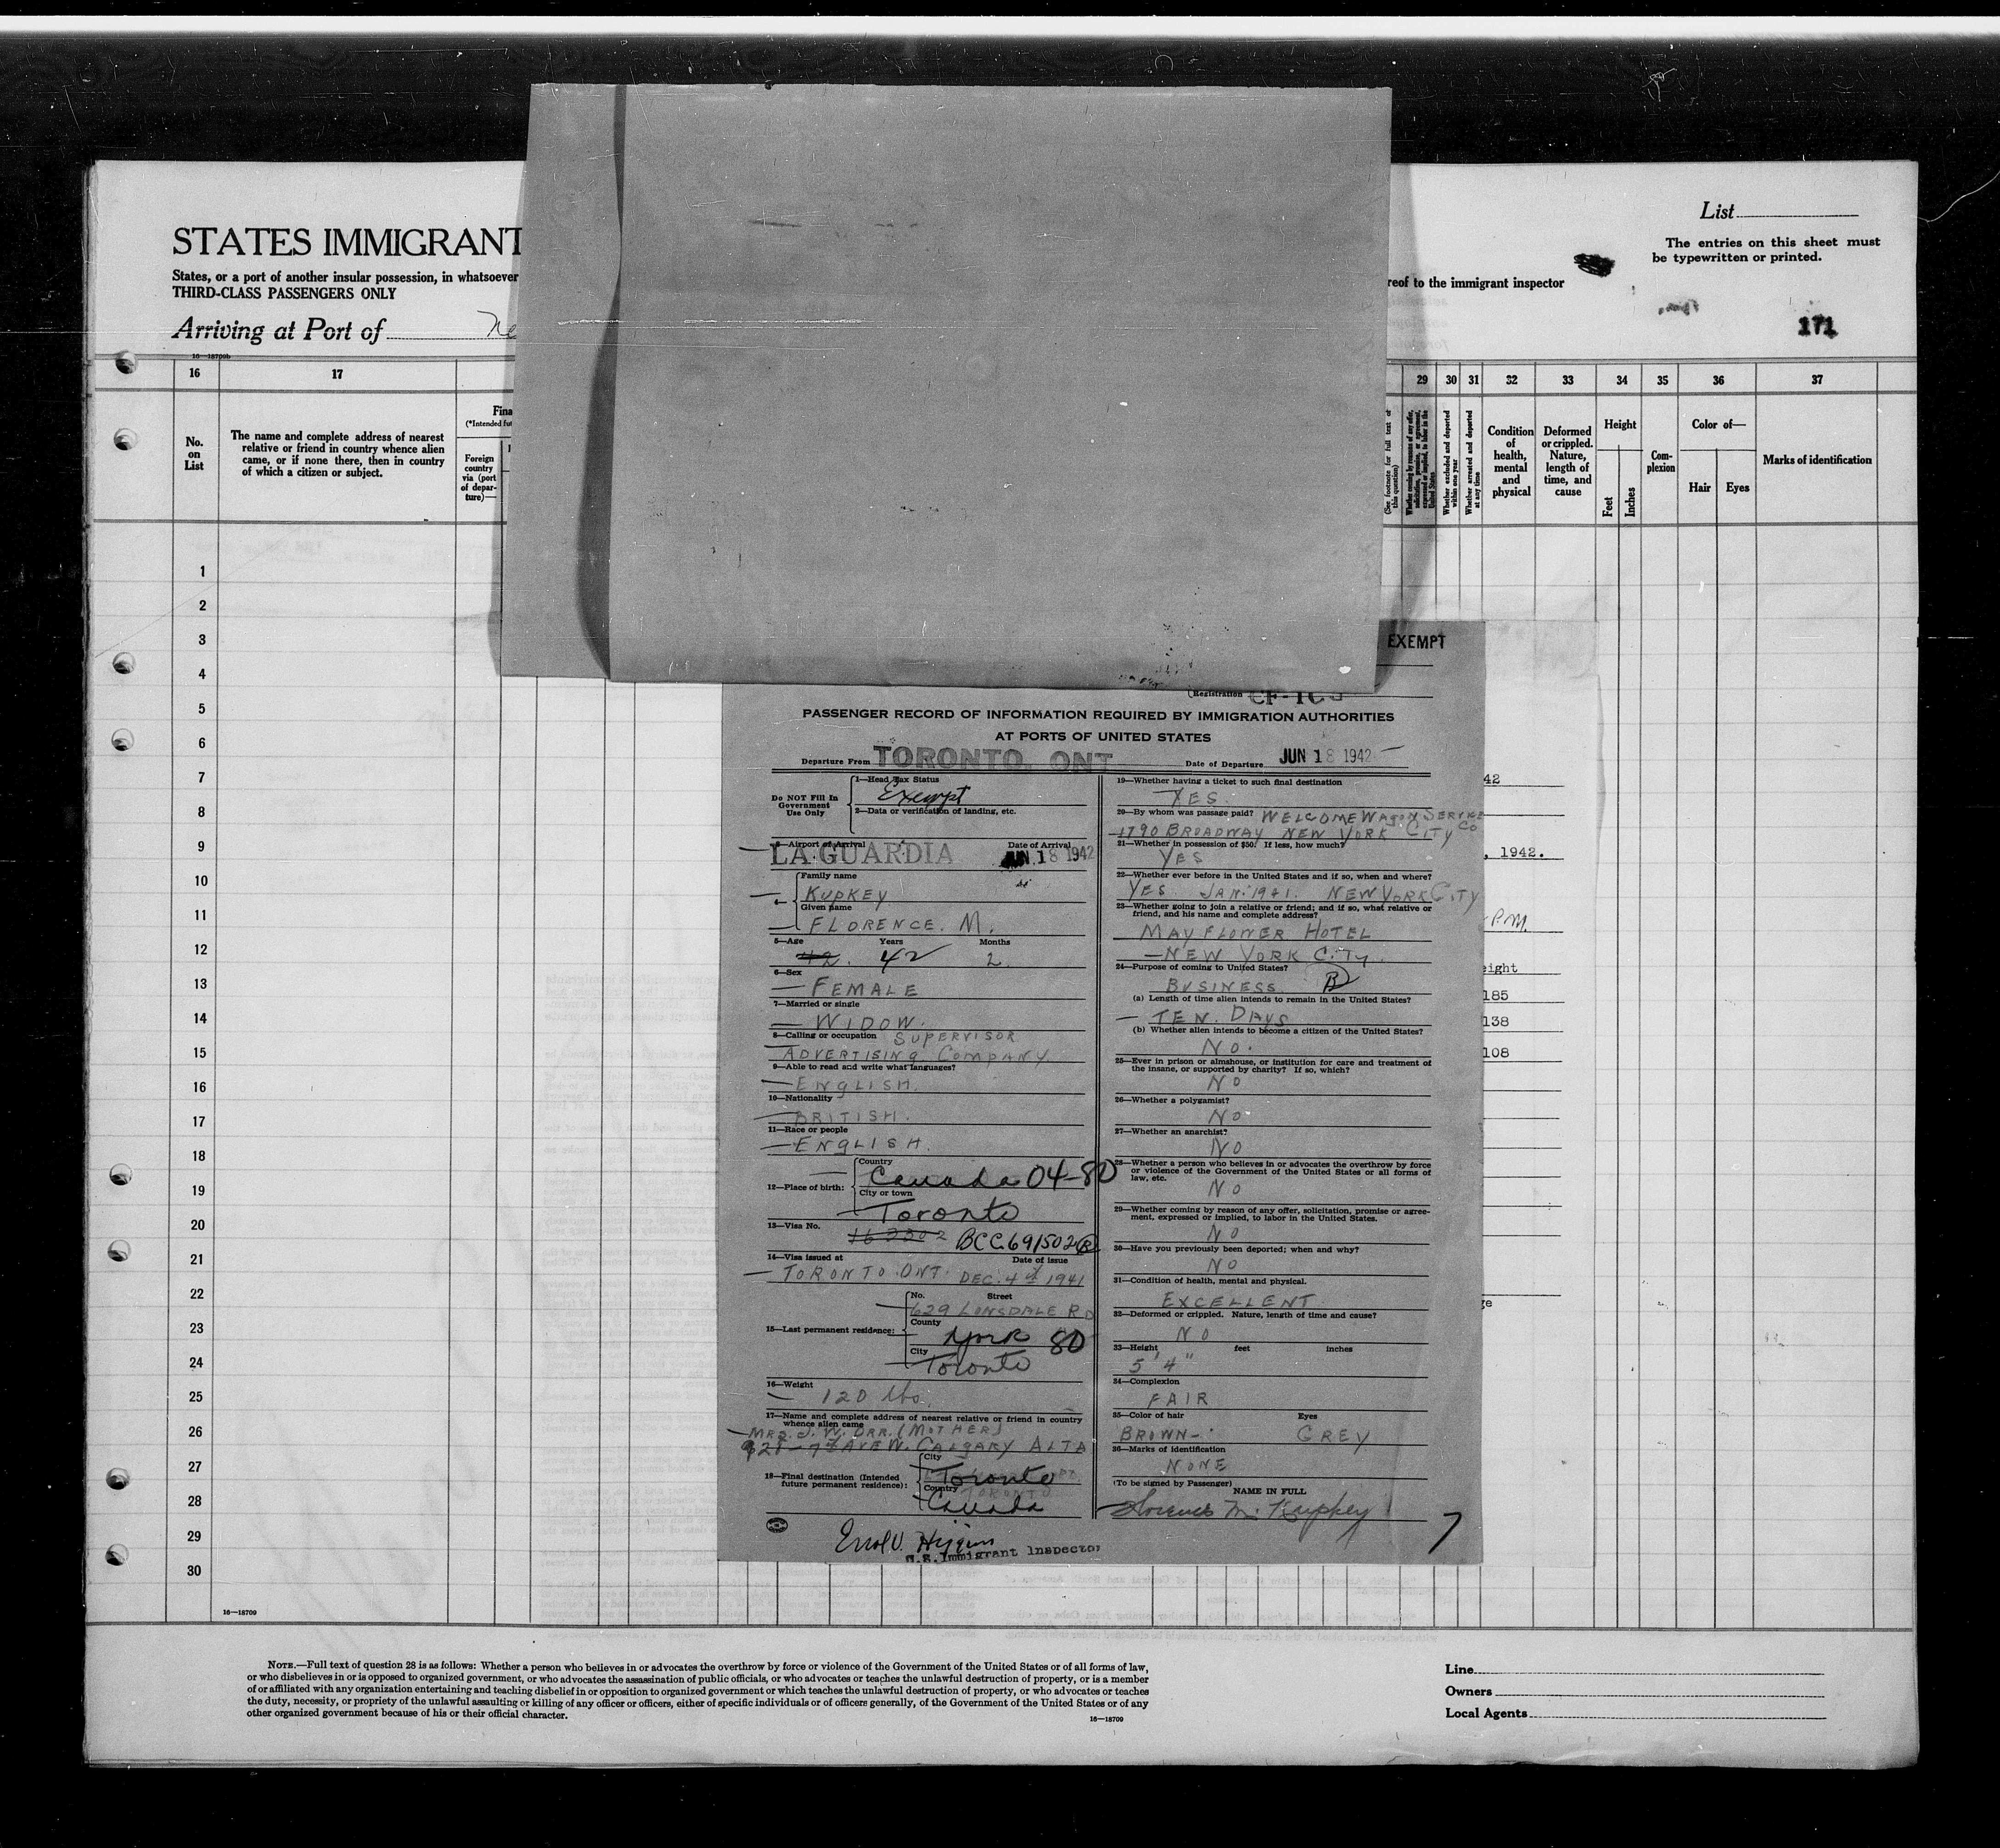 List
The entries on this sheet must
be typewritten or printed.
STATES IMMIGRANT
States, or a port of another insular possession, in whatsoever
reof to the immigrant inspector
THIRD-CLASS PASSENGERS ONLY
Arriving at Port of Ne
171
16—18709b
16 17 29 30 31 32 33 34 35 36 37
No. on List
The name and complete address of nearest
relative or friend in country whence alien
came, or if none there, then in country
of which a citizen or subject.
Fina
(*Intended fut
Foreign
country
via (port
of depar-
ture)—
(See footnote for full text of
this question)
Whether coming by reason of any offer,
solicitation, promise, or agreement,
expressed or implied, to labor in the
United States
Whether excluded and deported
within one year
Whether arrested and deported
at any time
Condition
of
health,
mental
and
physical
Deformed
or crippled.
Nature,
length of
time, and
cause
Height
Feet
Inches
Com-
plexion
Color of—
Hair Eyes
Marks of identification
1
2
3
4
5
6
7
8
9
10
11
12
13
14
15
16
17
18
19
20
21
22
23
24
25
26
27
28
29
30
EXEMPT
Registration
PASSENGER RECORD OF INFORMATION REQUIRED BY IMMIGRATION AUTHORITIES
AT PORTS OF UNITED STATES
Departure From TORONTO, ONT Date of Departure JUN 18 1942
Do NOT Fill In
Government
Use Only
1—Head Tax Status
Exempt
2—Data or verification of landing, etc.
3—Airport of Arrival Date of Arrival
LA GUARDIA JUN 18 1942
4—
Family name
KUPKEY
Given name
FLORENCE. M.
5—Age Years Months
42. 42 2
6—Sex
FEMALE
7—Married or single
WIDOW.
8—Calling or occupation SUPERVISOR
ADVERTISING COMPANY.
9—Able to read and write what languages?
ENGLISH.
10—Nationality
BRITISH.
11—Race or people
ENGLISH.
12—Place of birth:
Country
Canada 04-80
City or town
Toronto
13—Visa No.
BCC.691502 R
14—Visa issued at Date of issue
TORONTO ONT. DEC. 4th 1941
15—Last permanent residence:
No. Street
629 LONSDALE RD
County
York 80
City
Toronto
16—Weight
120 lbs.
17—Name and complete address of nearest relative or friend in country
whence alien came
MRS. J. W. ORR. (MOTHER)
928-7th AVE W. CALGARY ALTA
18—Final destination (Intended
future permanent residence):
City
Toronto
Country
Canada
Errol V. Higgins
U.S. Immigrant Inspector
19—Whether having a ticket to such final destination
YES
20—By whom was passage paid? WELCOME WAGON SERVICE
1790 BROADWAY NEW YORK CITY Co
21—Whether in possession of $50. If less, how much?
YES
22—Whether ever before in the United States and if so, when and where?
YES. JAN. 1941. NEW YORK CITY
23—Whether going to join a relative or friend; and if so, what relative or
friend, and his name and complete address?
MAYFLOWER HOTEL
NEW YORK CITY.
24—Purpose of coming to United States?
BUSINESS. B
(a) Length of time alien intends to remain in the United States?
TEN. DAYS
(b) Whether alien intends to become a citizen of the United States?
NO.
25—Ever in prison or almshouse, or institution for care and treatment of
the insane, or supported by charity? If so, which?
NO
26—Whether a polygamist?
NO
27—Whether an anarchist?
NO
28—Whether a person who believes in or advocates the overthrow by force
or violence of the Government of the United States or all forms of
law, etc.
NO
29—Whether coming by reason of any offer, solicitation, promise or agree-
ment, expressed or implied, to labor in the United States.
NO
30—Have you previously been deported; when and why?
NO
31—Condition of health, mental and physical.
EXCELLENT
32—Deformed or crippled. Nature, length of time and cause?
NO
33—Height feet inches
5' 4"
34—Complexion
FAIR
35—Color of hair Eyes
BROWN GREY
36—Marks of identification
NONE
(To be signed by Passenger)
NAME IN FULL
Florence M. Kupkey
7
42
, 1942.
P.M.
eight
185
138
108
ge
16—18709
NOTE.—Full text of question 28 is as follows: Whether a person who believes in or advocates the overthrow by force or violence of the Government of the United States or of all forms of law,
or who disbelieves in or is opposed to organized government, or who advocates the assassination of public officials, or who advocates or teaches the unlawful destruction of property, or is a member
of or affiliated with any organization entertaining and teaching disbelief in or opposition to organized government or which teaches the unlawful destruction of property, or who advocates or teaches
the duty, necessity, or propriety of the unlawful assaulting or killing of any officer or officers, either of specific individuals or of officers generally, of the Government of the United States or of any
other organized government because of his or their official character.
16—18709
Line
Owners
Local Agents